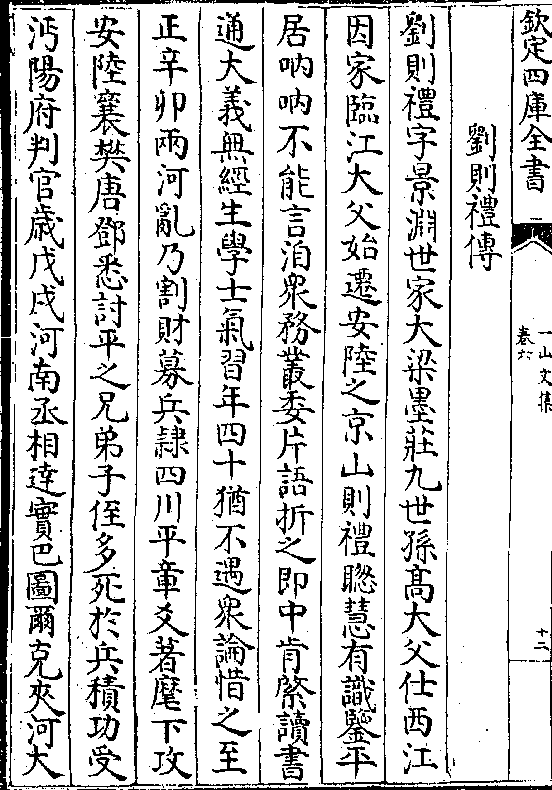 欽定四庫全書
一山文集
卷六
十二
劉則禮傳
劉則禮字景淵世家大梁墨莊九世孫髙大父仕西江
因家臨江大父始遷安陸之京山則禮聰慧有識鑒平
居吶吶不能言洎衆務叢委片語折之即中肯綮讀書
通大義無經生學士氣習年四十猶不遇衆論惜之至
正辛卯兩河亂乃割財募兵隷四川平章爻著麾下攻
安陸襄樊唐鄧悉討平之兄弟子侄多死於兵積功受
沔陽府判官歳戊戌河南丞相達實巴圖爾克夾河大